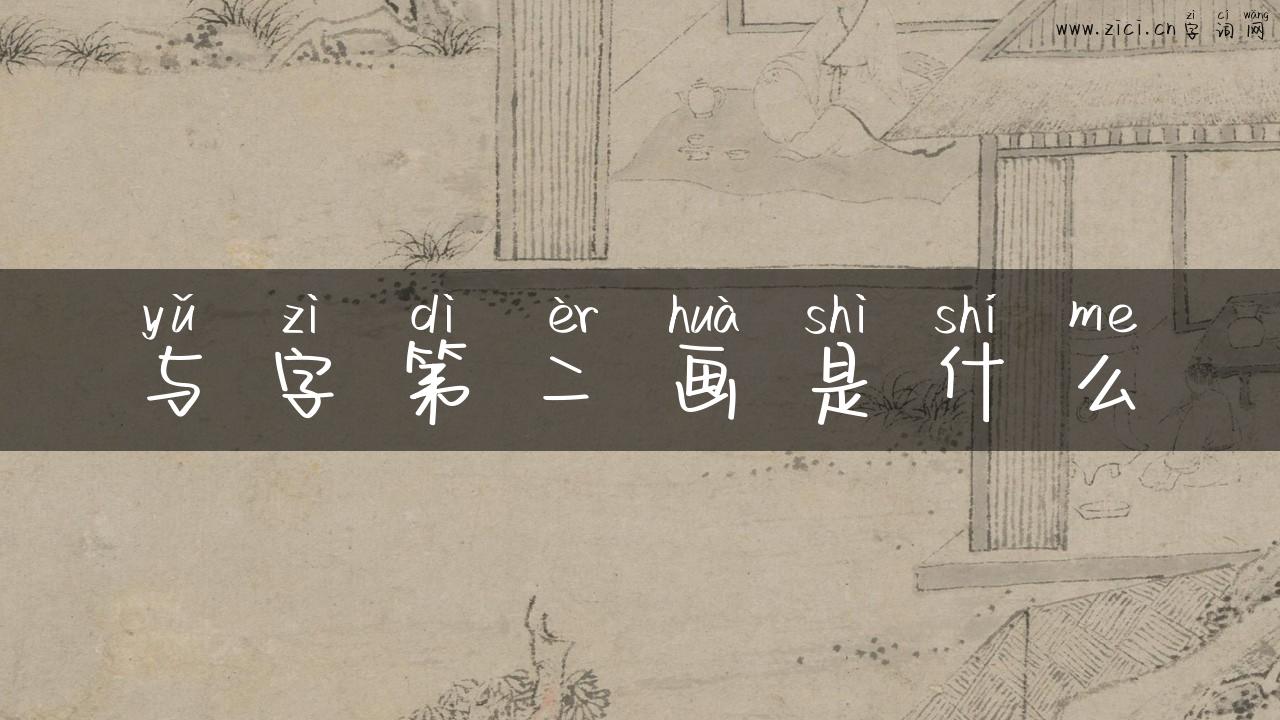 zì cí wǎng
www.zici.cn 字 词 网
yǔ zì dì èr huà shì shí me
与 字 第 二 画 是 什 么